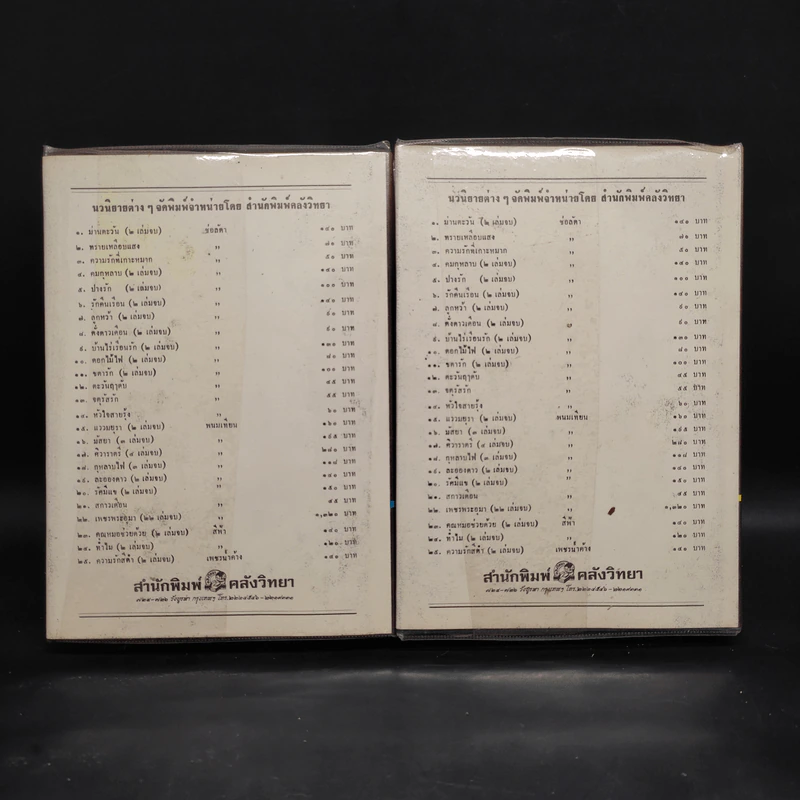 นวนิยายต่าง ๆ จัดพิมพ์จำหน่ายโดย สำนักพิมพ์คลังวิทยา
๑. ม่านตะวัน (๒ เล่มจบ) ช่อลัดา ๑๔๑ บาท
๒. พรายเหลือบแสง ,, ๗๐ บาท
๓. ความรักที่เกาะหมาก ,, ๕๐ บาท
๔. คมกุหลาบ (๒ เล่มจบ) ,, ๑๔๐ บาท
๕. ปางรัก (๒ เล่มจบ) ,, ๑๐๐ บาท
๖. รักคืนเรือน (๒ เล่มจบ) ,, ๑๔๐ บาท
๗. ลูกหว้า (๒ เล่มจบ) ,, ๙๐ บาท
๘. ดั่งดาวเคือน (๒ เล่มจบ) ,, ๙๐ บาท
๙. บ้านไร่เรือนรัก (๒ เล่มจบ) ,, ๑๓๐ บาท
๑๐. ดอกไม้ไฟ (๒ เล่มจบ) ,, ๘๐ บาท
๑๑. ชดารัก (๒ เล่มจบ) ,, ๑๐๐ บาท
๑๒. ตะวันฤาดับ ,, ๔๕ บาท
๑๓. จตุรัสรัก ,, ๕๕ บาท
๑๔. หัวใจสายรุ้ง ,, ๖๐ บาท
๑๕. แววมยุรา (๒ เล่มจบ) พนมเทียน ๑๖๐ บาท
๑๖. มัสยา (๓ เล่มจบ) ,, ๑๙๕ บาท
๑๗. ศิวาราตรี (๔ เล่มจบ) ,, ๒๘๐ บาท
๑๘. กุหลาบไฟ (๓ เล่มจบ) ,, ๑๑๘ บาท
๑๙. ละอองดาว (๒ เล่มจบ) ,, ๑๔๐ บาท
๒๐. รัศมีแข (๒ เล่มจบ) ,, ๑๕๐ บาท
๒๑. สกาวเดือน ,, ๔๕ บาท
๒๒. เพชรพระอุมา (๒๒ เล่มจบ) ,, ๑,๓๒๐ บาท
๒๓. คุณหมอช่วยด้วย (๒ เล่มจบ) สีฟ้า ๑๔๐ บาท
๒๔. ทำไม (๒ เล่มจบ) ,, ๑๒๐ บาท
๒๕. ความรักสีดำ (๒ เล่มจบ) เพชรน้ำค้าง ๑๔๐ บาท
สำนักพิมพ์ คลังวิทยา
๗๒๔-๗๒๖ วังบูรพา กรุงเทพฯ โทร.
นวนิยายต่าง ๆ จัดพิมพ์จำหน่ายโดย สำนักพิมพ์คลังวิทยา
๑. ม่านตะวัน (๒ เล่มจบ) ช่อลัดา ๑๔๑ บาท
๒. พรายเหลือบแสง ,, ๗๐ บาท
๓. ความรักที่เกาะหมาก ,, ๕๐ บาท
๔. คมกุหลาบ (๒ เล่มจบ) ,, ๑๔๐ บาท
๕. ปางรัก (๒ เล่มจบ) ,, ๑๐๐ บาท
๖. รักคืนเรือน (๒ เล่มจบ) ,, ๑๔๐ บาท
๗. ลูกหว้า (๒ เล่มจบ) ,, ๙๐ บาท
๘. ดั่งดาวเคือน (๒ เล่มจบ) ๙๐ บาท
๙. บ้านไร่เรือนรัก (๒ เล่มจบ) ,, ๑๓๐ บาท
๑๐. ดอกไม้ไฟ (๒ เล่มจบ) ,, ๘๐ บาท
๑๑. ชดารัก (๒ เล่มจบ) ,, ๑๐๐ บาท
๑๒. ตะวันฤาดับ ,, ๔๕ บาท
๑๓. จตุรัสรัก ,, ๕๕ บาท
๑๔. หัวใจสายรุ้ง ,, ๖๐ บาท
๑๕. แววมยุรา (๒ เล่มจบ) พนมเทียน ๑๖๐ บาท
๑๖. มัสยา (๓ เล่มจบ) ,, ๑๙๕ บาท
๑๗. ศิวาราตรี (๔ เล่มจบ) ,, ๒๘๐ บาท
๑๘. กุหลาบไฟ (๓ เล่มจบ) ,, ๑๑๘ บาท
๑๙. ละอองดาว (๒ เล่มจบ) ,, ๑๔๐ บาท
๒๐. รัศมีแข (๒ เล่มจบ) ,, ๑๕๐ บาท
๒๑. สกาวเดือน ,, ๔๕ บาท
๒๒. เพชรพระอุมา (๒๒ เล่มจบ) ,, ๑,๓๒๐ บาท
๒๓. คุณหมอช่วยด้วย (๒ เล่มจบ) สีฟ้า ๑๔๐ บาท
๒๔. ทำไม (๒ เล่มจบ) ,, ๑๒๐ บาท
๒๕. ความรักสีดำ (๒ เล่มจบ) เพชรน้ำค้าง ๑๔๐ บาท
สำนักพิมพ์ คลังวิทยา
๗๒๔-๗๒๖ วังบูรพา กรุงเทพฯ โทร.